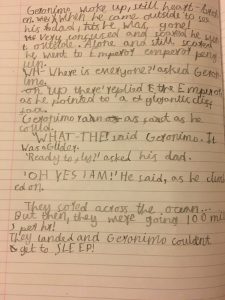 Geronimo woke up, still heart-brok
en when he came outside to see
his dad, but he was, gone!
Very confused and scared he went
outside. Alone and still, scared
he went to Emperor emperor peng
uin.
WH- Where is everyone?' asked Geron
imo.
'on up there' replied the Emperor
as he pointed to a gigantic clif
face.
Geronimo ran as fast as he
could.
'WHAT-THE!' said Geronimo. It
was a Glider.
'Ready to fly?' asked his dad.
'OH YES I AM!' He said, as he climb
ed on.
They sored across the ocean...
But then, they were going 100 mile
s per hr!
They landed and Geronimo couldnt
get to SLEEP!